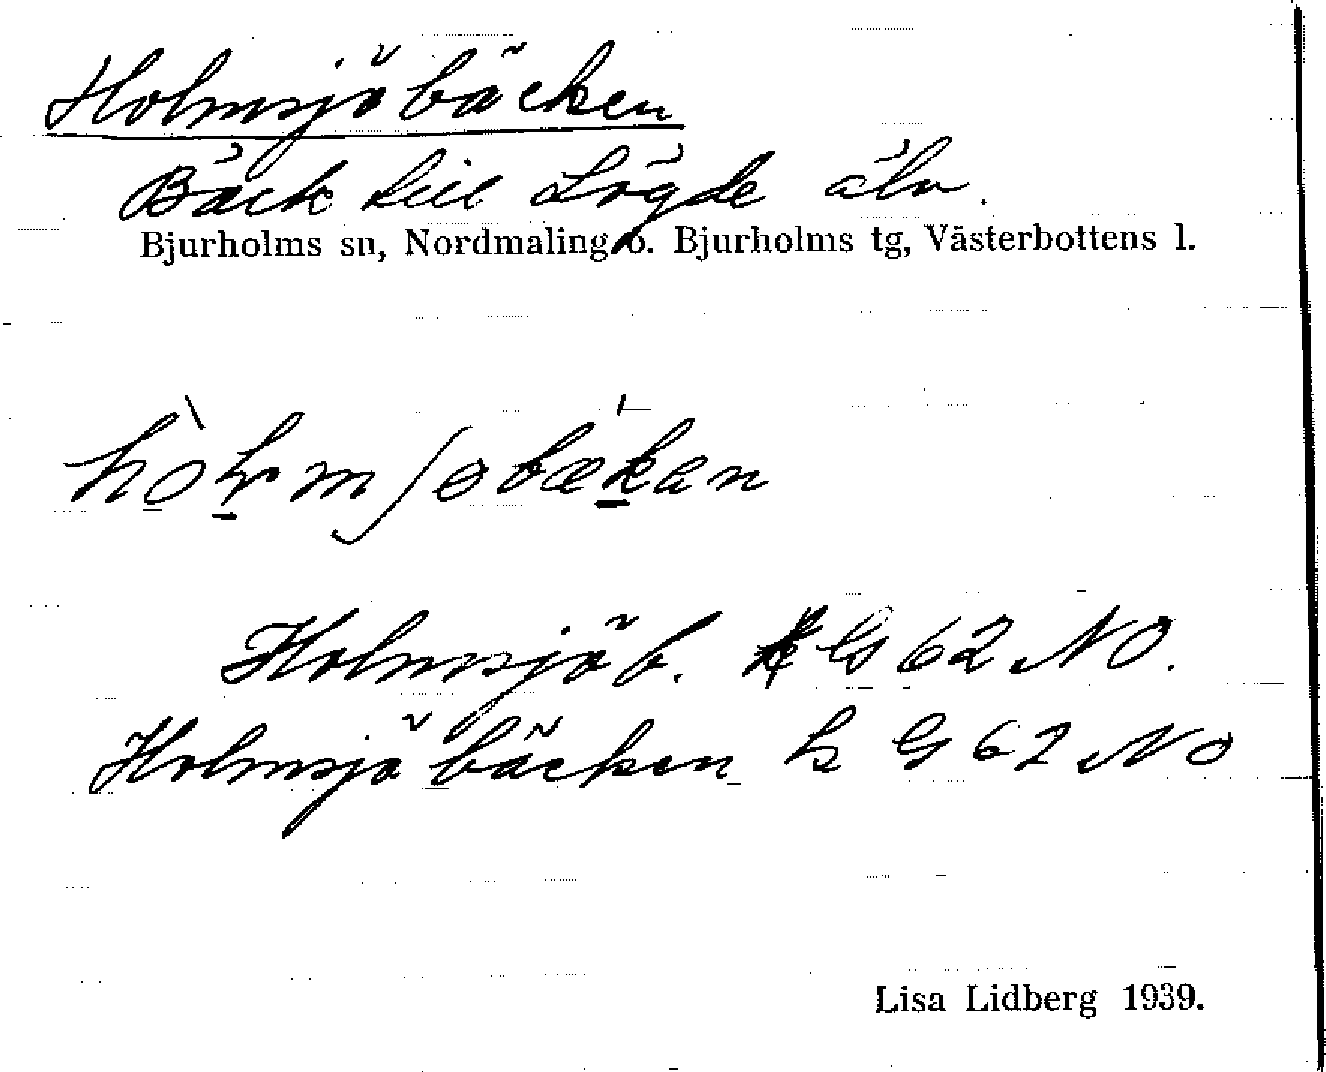 Holmsjöbäcken
Bäck till Lögde älv.
Bjurholms sn, Nordmaling o. Bjurholms tg, Västerbottens l.
Holmsjöb. GS 62 NO.
Holmsjöbäcken h G 62 NO
Lisa Lidberg 1939.